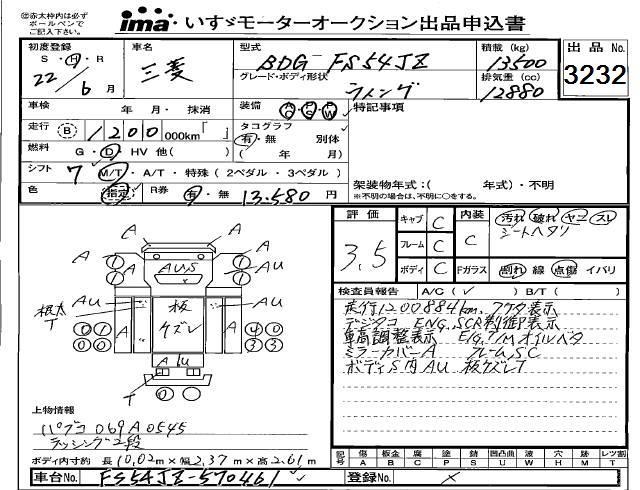 ㊟赤太枠内は必ずボールペンでご記入下さい。
ima いすゞモーターオークション出品申込書
初度登録 S・H・R 22/6月
車名 三菱
型式 BDG-FS54JZ
グレード・ボディ形状 ラウィング
積載 (kg) 13500
排気量 (cc) 12880
出品 No. 3232
車検 年 月・ 抹消
装備 AC PS PW
特記事項
走行 B 1200 000km「 」
タコグラフ 有・無 別体 ( 年 月)
燃料 G・D・HV 他( )
シフト 7 M/T・A/T・特殊(2ペダル・3ペダル)
色 指定 R券 有・無 13,580円
架装物年式:( 年式)・不明
※不明の場合は、不明に○をする。
評価 3.5
キャブ C
フレーム C
ボディ C
内装 C
Fガラス
汚れ 破れ ヤニ スレ
シートヘタリ
割れ 線 点傷 イバリ
検査員報告 A/C( ✓ ) B/T( )
走行1200884km. アケタ表示
デジタコ ENG,SCR制御P表示
車高調整表示 E/G.T/Mオイルベタ
ミラーカバーA フレームSC
ボディS内AU 板ケズレT
A A
A A
AUS
A
AU AU
根太T
板ケズレ
A A
AU
T
上物情報
パブコ 069A0545
ラッシング2段
ボディ内寸約 長10.02m×幅2.37m×高2.61m
記号 傷A 板金B 腐C 塗P 錆S 凹凸曲U 波W 穴H 跡M レツ割T
車台No. FS54JZ-570461
登録No. ×